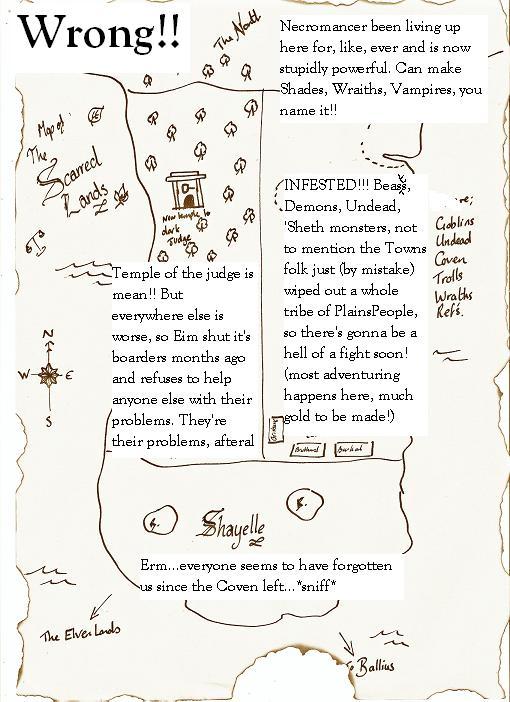 Wrong!!
The North
Necromancer been living up
here for, like, ever and is now
stupidly powerful. Can make
Shades, Wraiths, Vampires, you
name it!!
Map of:
The
Scarred
Lands
New temple to
dark
Judge
INFESTED!!! Beasts,
Demons, Undead,
'Sheth monsters, not
to mention the Towns
folk just (by mistake)
wiped out a whole
tribe of PlainsPeople,
so there's gonna be a
hell of a fight soon!
(most adventuring
happens here, much
gold to be made!)
re;
Goblins
Undead
Coven
Trolls
Wraiths
Refs.
Temple of the judge is
mean!! But
everywhere else is
worse, so Eim shut it's
boarders months ago
and refuses to help
anyone else with their
problems. They're
their problems, afteral
N
W E
S
Shayelle
Erm...everyone seems to have forgotten
us since the Coven left...*sniff*
The Elven Lands
To Ballius